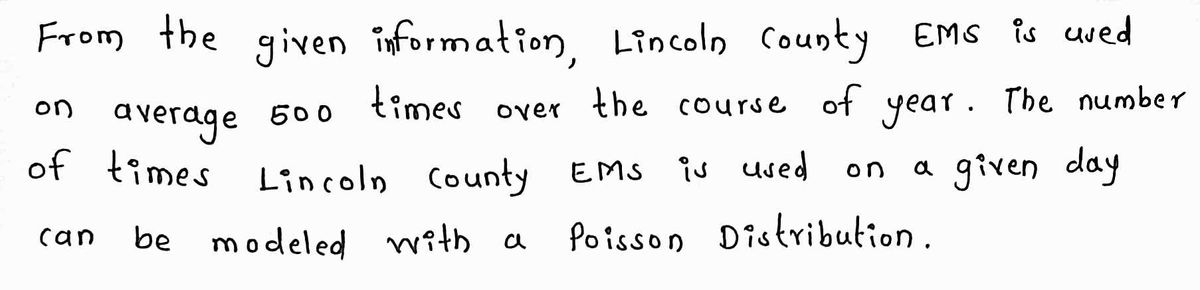 From the given information, Lincoln County EMS is used
on average 500 times over the course of year. The number
of times Lincoln County EMS is used on a given day
can be modeled with a Poisson Distribution.